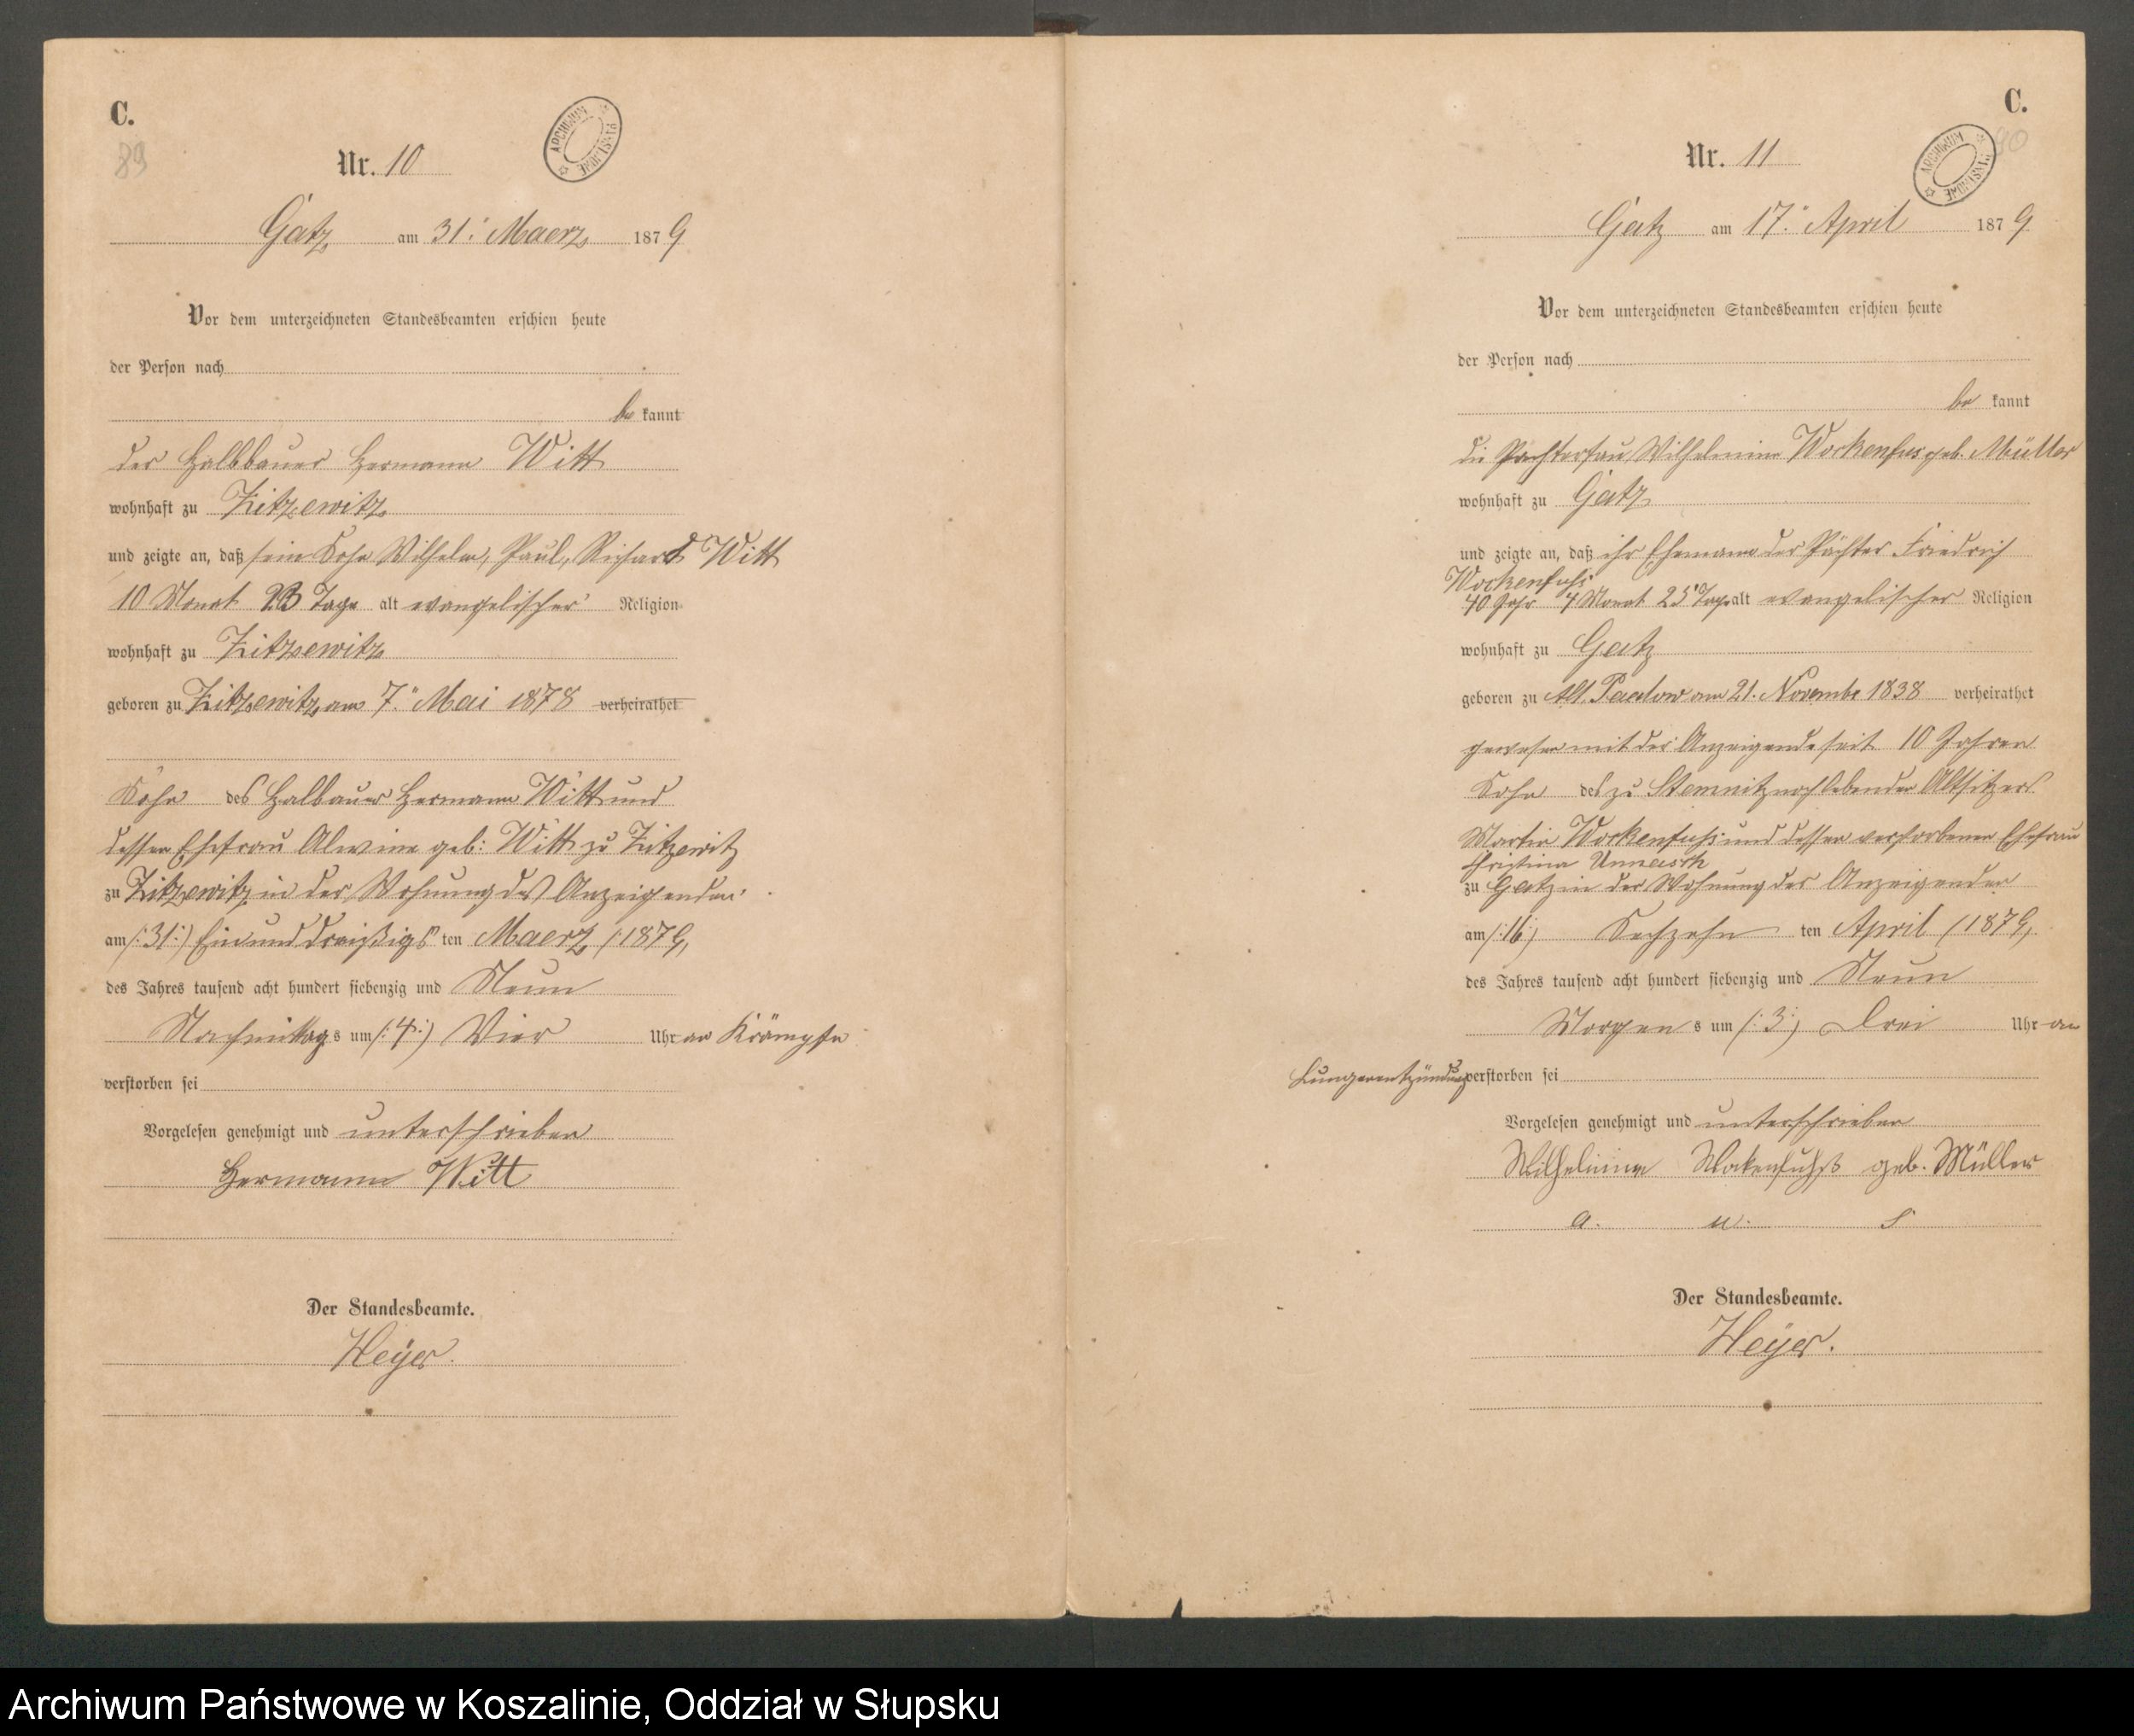 C.
89
Nr. 10
ARCHIWUM PAŃSTWOWE
Gatz am 31. Maerz 1879
Vor dem unterzeichneten Standesbeamten erschien heute
der Person nach
be kannt
der Halbbauer Hermann Witt
wohnhaft zu Zitzewitz
und zeigte an, daß sein Sohn Wilhelm, Paul, Richard Witt
10 Monat 23 Tage alt evangelischer Religion
wohnhaft zu Zitzewitz
geboren zu Zitzewitz am 7. Mai 1878 verheirathet
Sohn des Halbauer Hermann Witt und
dessen Ehefrau Alwine geb: Witt zu Zitzewitz
zu Zitzewitz in der Wohnung des Anzeigenden
am /:31:/ Einunddreißigs ten Maerz /:1879,
des Jahres tausend acht hundert siebenzig und Neun
Nachmittag s um /:4:/ Vier Uhr an Krämpfe
verstorben sei
Vorgelesen genehmigt und unterschrieben
Hermann Witt
Der Standesbeamte.
Heyer.
C.
90
Nr. 11
ARCHIWUM PAŃSTWOWE
Gatz am 17. April 1879
Vor dem unterzeichneten Standesbeamten erschien heute
der Person nach
be kannt
die Pachterfrau Wilhelmine Wockenfus geb. Müller
wohnhaft zu Gatz
und zeigte an, daß ihr Ehemann der Pächter Friedrich
Wockenfuhs
40 Jahr 4 Monat 25 Tage alt evangelischer Religion
wohnhaft zu Gatz
geboren zu Alt. Paalow am 21. Novembe 1838 verheirathet
gewesen mit der Anzeigende seit 10 Jahren
Sohn des zu Stemnitz noch lebenden Altsitzers
Martin Wockenfuhs und dessen verstorbenen Ehefrau
Christina
zu Gatz in der Wohnung der Anzeigenden
am /:16:/ Sechzehn ten April /1879,
des Jahres tausend acht hundert siebenzig und Neun
Morgen s um /:3:/ Drei Uhr an
Lungenentzündung verstorben sei
Vorgelesen genehmigt und unterschrieben
Wilhelmine Wokenfuhß geb. Müller
a. u. s
Der Standesbeamte.
Heyer.
Archiwum Państwowe w Koszalinie, Oddział w Słupsku